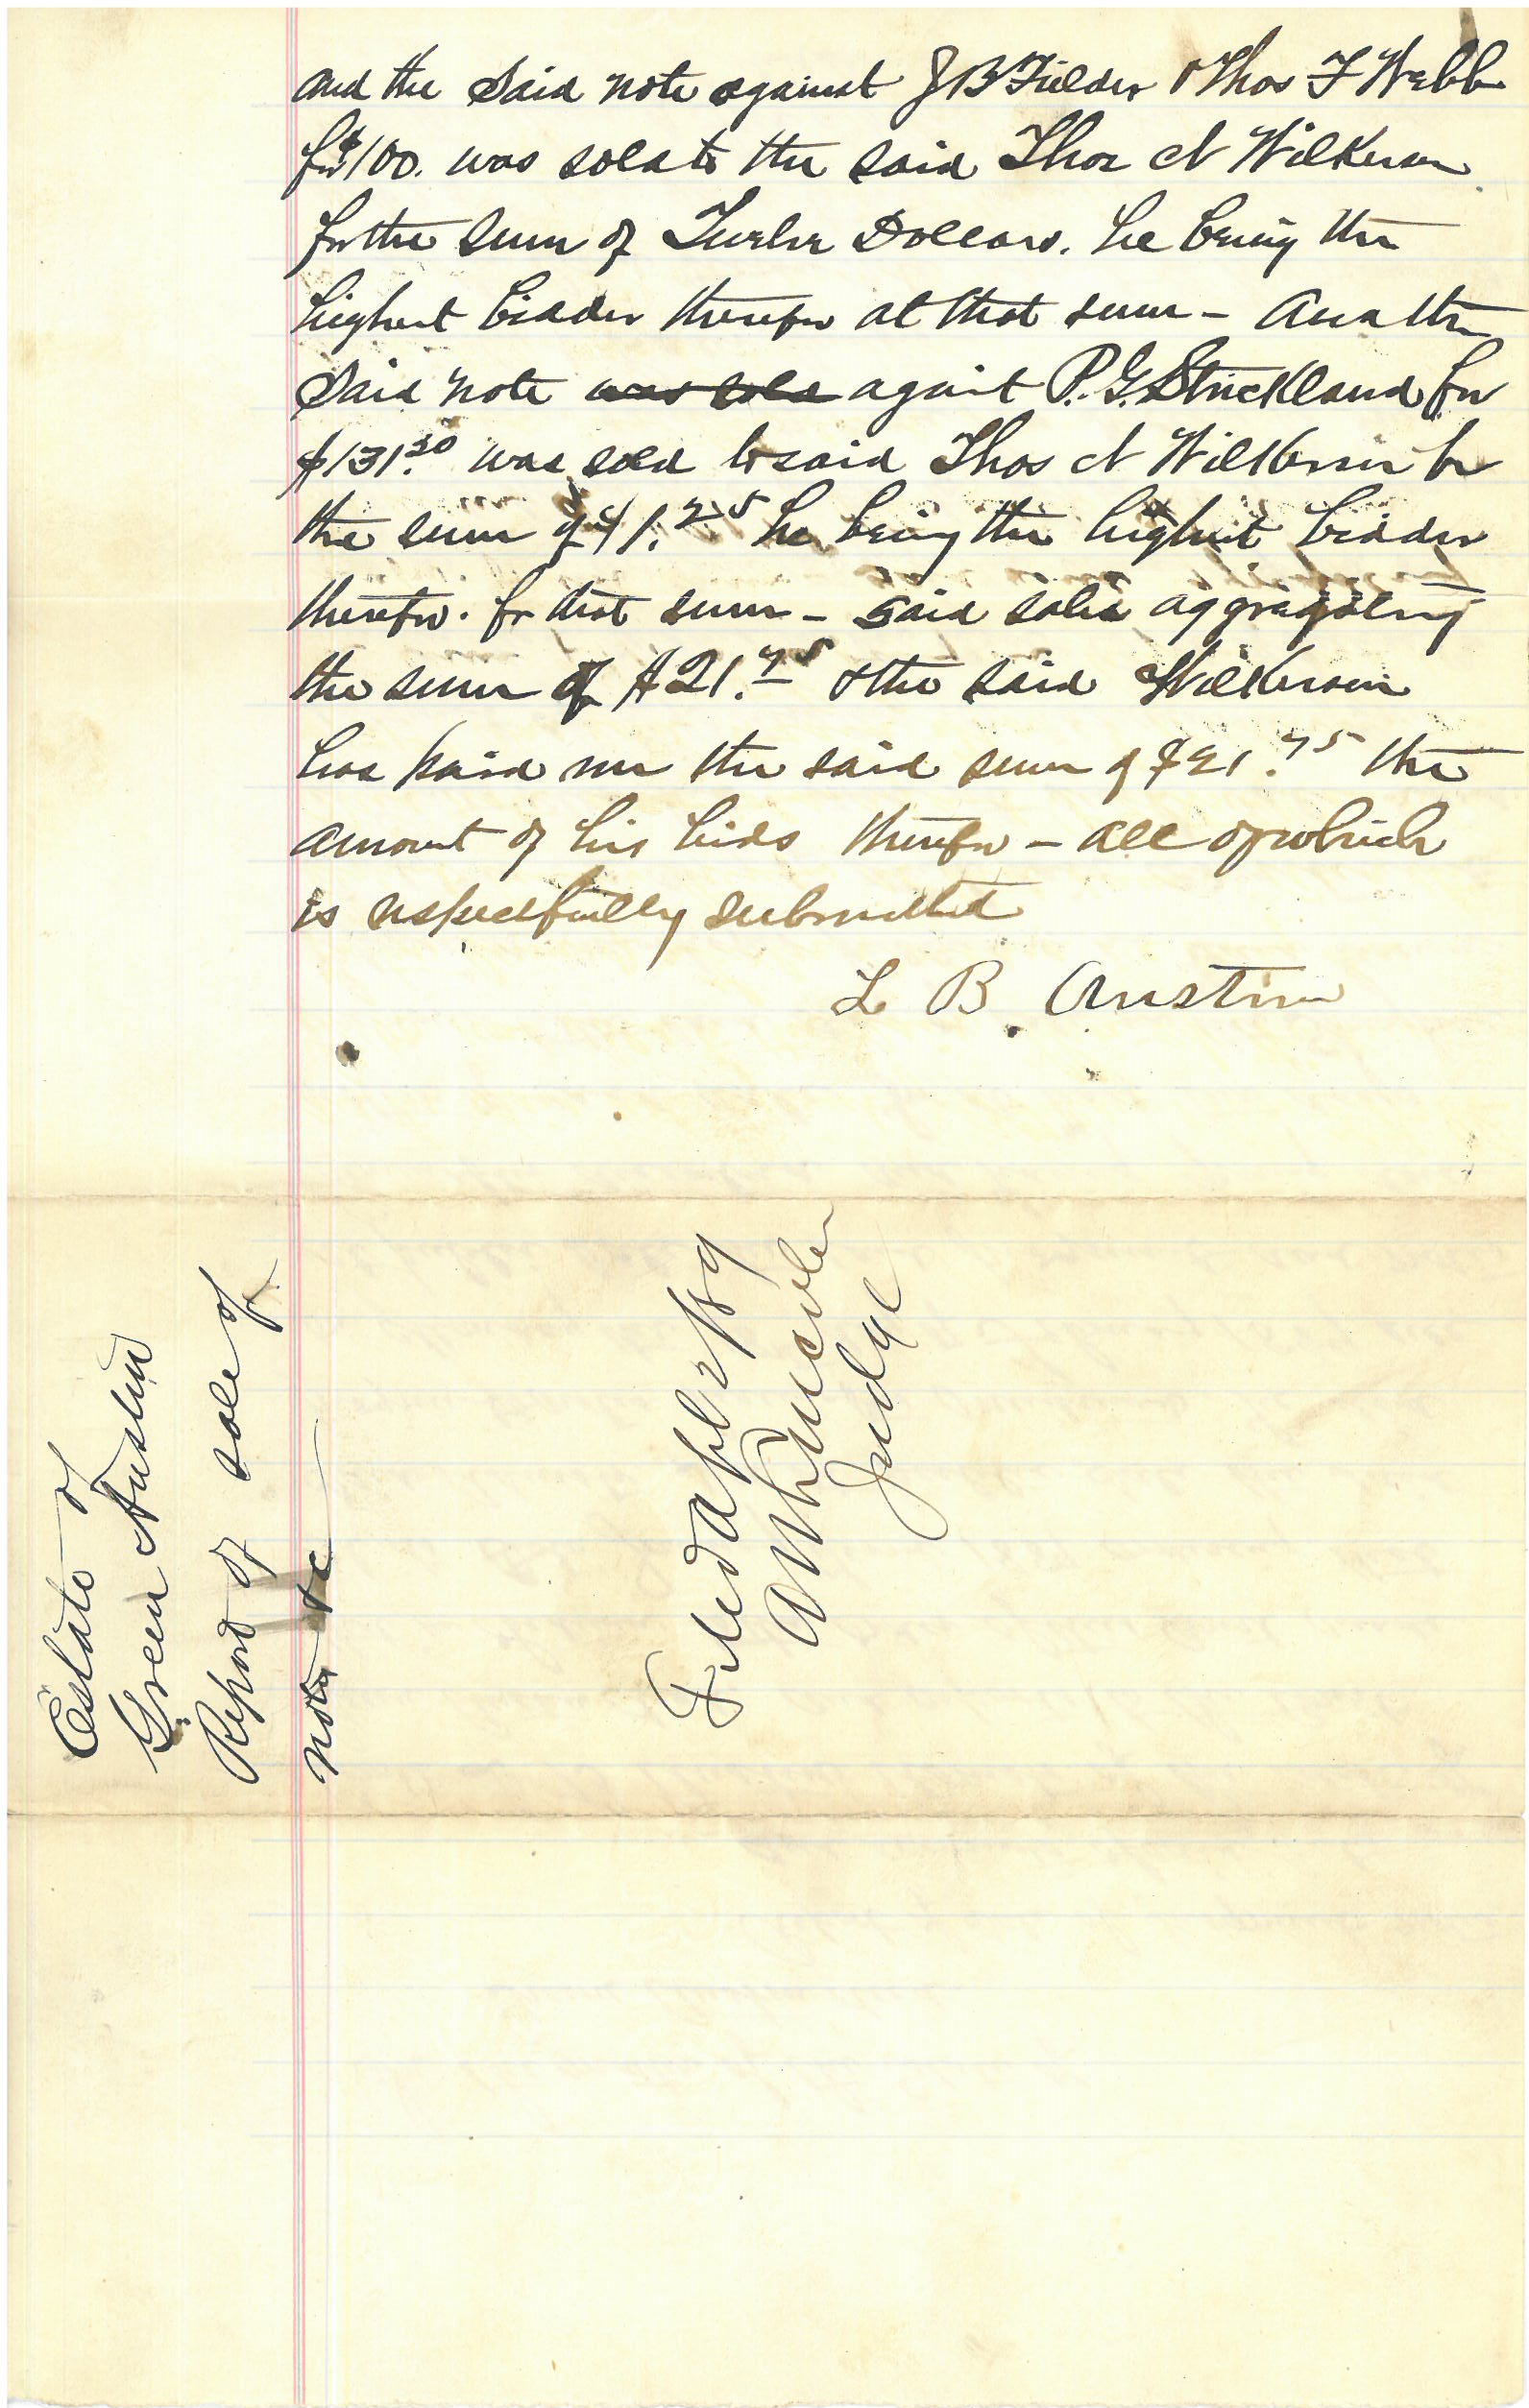 and the said note against J B Fielder & Thos F Webb
for $100. was sold to the said Thos N Wilkerson
for the sum of Twelve Dollars. he being the
highest bidder therefor at that sum - And the
said note was sold against P. G. Strickland for
$131.30 was sold to said Thos N Wilkerson for
the sum of $1.25 he being the highest bidder
therefor. for that sum - said sales aggregating
the sum of $21.75 & the said Wilkerson
has paid me the said sum of $21.75 the
amount of his bids therefor - all of which
is respectfully submitted
L B. Austin
Estate of
Green Austin
Report of sale of
notes &c
Filed Apl
Judge